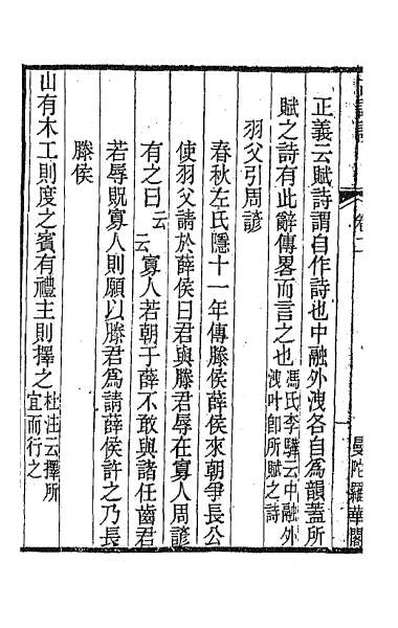 卷二
曼陀羅華閣
正義云賦詩謂自作詩也中融外洩各自為韻蓋所
賦之詩有此辭傳畧而言之也馮氏李驊云中融外
洩叶卽所賦之詩
羽父引周諺
春秋左氏隱十一年傳滕侯薛侯來朝爭長公
使羽父請於薛侯曰君與滕君辱在寡人周諺
有之曰云云寡人若朝于薛不敢與諸任齒君
若辱貺寡人則願以滕君為請薛侯許之乃長
滕侯
山有木工則度之賓有禮主則擇之杜注云擇所
宜而行之